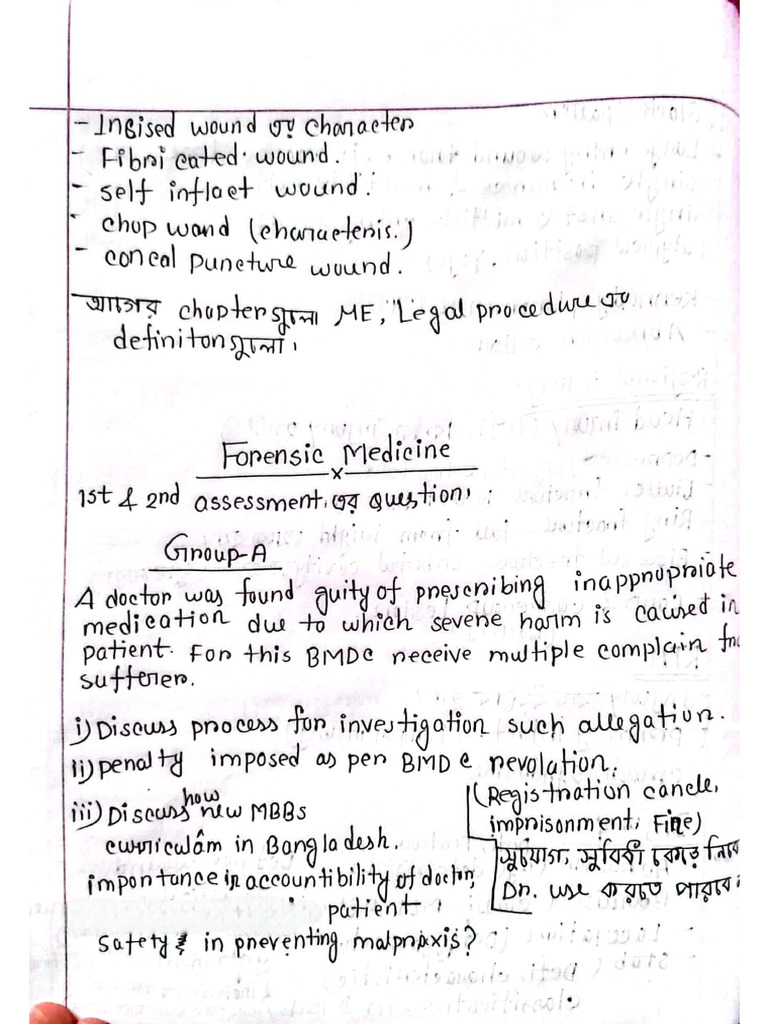 - Incised wound এর character
- Fibricated wound.
- self inflact wound.
- chop wand (characteris.)
- concal puncture wound.
আগের chapterগুলো ME, Legal procedure এর
definitonগুলো।
Forensic Medicine
x
1st & 2nd assessment এর question,
Group-A
A doctor was found guity of prescribing inappropriate
medication due to which severe harm is caused in
patient. For this BMDC receive multiple complain
sufferer.
i) Discuss process for investigation such allegation.
ii) penalty imposed as per BMDC revolation.
(Registration cancle,
imprisonment, Fine)
সুযোগ, সুবিধী কেড়ে নিবে
Dr. use করতে পারবে
iii) Discuss how new MBBS
curriculam in Bangladesh.
importance in accountibility of doctor,
patient
safety & in preventing malpraxis?